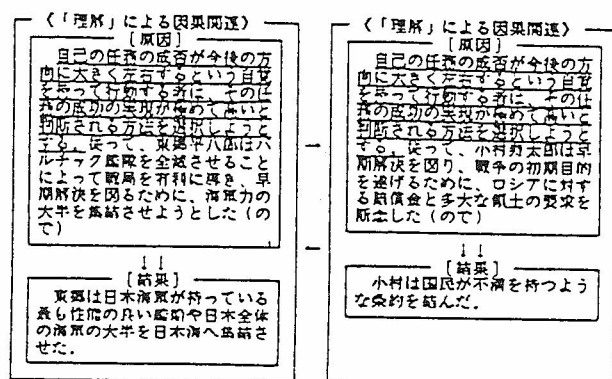 〈「理解」による因果関連〉
[原因]
自己の任務の成否が今後の方
向に大きく左右するという自覚
を持って行動する者に、その任
務の成功の実現が極めて高いと
判断される方法を選択しようと
する。従って、東郷平八郎はバ
ルチック艦隊を全滅させること
によって戦局を有利に導き、早
期解決を図るために、海軍力の
大半を集結させようとした(の
で)
↓↓
[結果]
東郷は日本海軍が持っている
最も性能の良い艦船や日本全体
の海軍の大半を日本海へ集結さ
せた。
〈「理解」による因果関連〉
[原因]
自己の任務の成否が今後の方
向に大きく左右するという自覚
を持って行動する者に、その任
務の成功の実現が極めて高いと
判断される方法を選択しようと
する。従って、小村寿太郎は早
期解決を図り、戦争の初期目的
を遂げるために、ロシアに対す
る賠償金と多大な領土の要求を
断念した(ので)
↓↓
[結果]
小村は国民が不満を持つよう
な条約を結んだ。